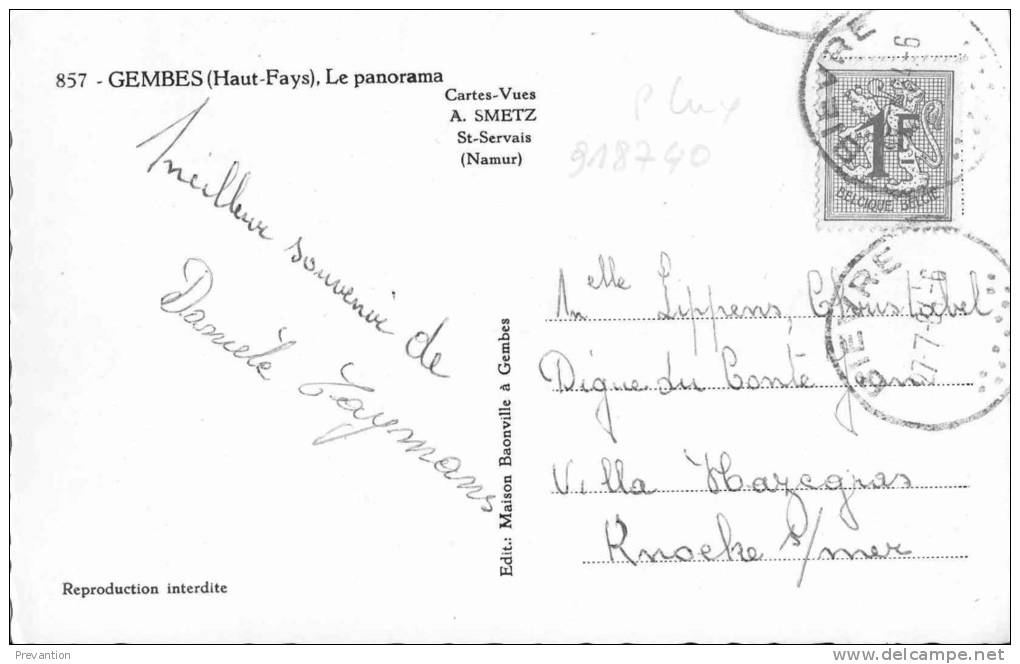 857 - GEMBES (Haut-Fays), Le panorama
Cartes-Vues
A. SMETZ
St-Servais
(Namur)
P Lux
918740
1F
BELGIQUE-BELGIE
BIEVRE
BIEVRE
Meilleur souvenir de
Danièle Taymans
Edit.: Maison Baonville à Gembes
Melle Lippens, Christabel
Digue du Conté Jean
Villa Hazegras
Knocke s/mer
Reproduction interdite
Prevention
delcampe.net